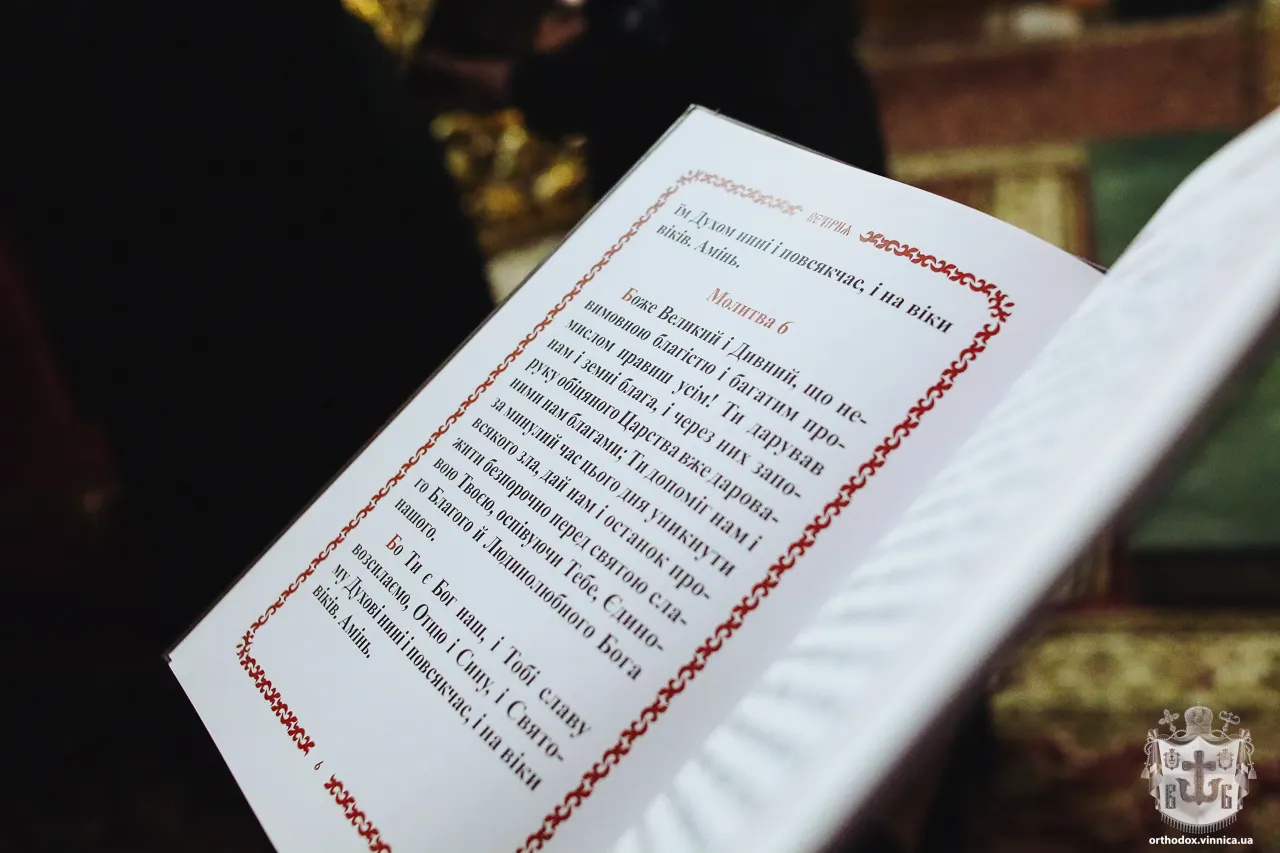 ВЕЧІРНЯ
їм Духом нині і повсякчас, і на віки
віків. Амінь.
Молитва 6
Боже Великий і Дивний, що не-
вимовною благістю і багатим про-
мислом правиш усім! Ти дарував
нам і земні блага, і через них запо-
руку обіцяного Царства вже дарова-
ними нам благами; Ти допоміг нам і
за минулий час цього дня уникнути
всякого зла, дай нам і останок про-
жити безпорочно перед святою сла-
вою Твоєю, оспівуючи Тебе, Єдино-
го Благого й Людинолюбного Бога
нашого.
Бо Ти є Бог наш, і Тобі славу
возсилаємо, Отцю і Сину, і Свято-
му Духові нині і повсякчас, і на віки
віків. Амінь.
6
В Б
orthodox.vinnica.ua